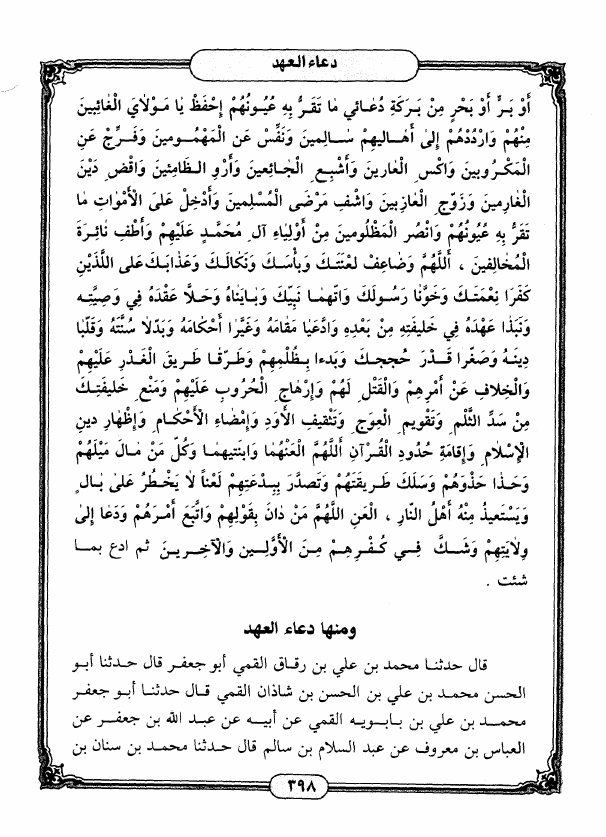 دعاء العهد
أَوْ بَرٍّ أَوْ بَحْرٍ مِنْ بَرَكَةِ دُعٰائي مٰا تَقَرُّ بِهِ عُيُونُهُمْ إِحْفَظْ يٰا مَوْلاٰيَ الْغٰائِبينَ
مِنْهُمْ وَارْدُدْهُمْ إِلىٰ أَهٰاليهِمْ سٰالِمينَ وَنَفِّسْ عَنِ الْمَهْمُومينَ وَفَرِّجْ عَنِ
الْمَكْرُوبينَ وَاكْسِ الْعٰارينَ وَأَشْبِعِ الْجٰائِعينَ وَأَرْوِ الظّٰامِئينَ وَاقْضِ دَيْنَ
الْغٰارِمينَ وَزَوِّجِ الْعٰازِبينَ وَاشْفِ مَرْضَى الْمُسْلِمينَ وَأَدْخِلْ عَلىَ الْأَمْوٰاتِ مٰا
تَقَرُّ بِهِ عُيُونُهُمْ وَانْصُرِ الْمَظْلُومينَ مِنْ أَوْلِيٰاءِ آلِ مُحَمَّدٍ عَلَيْهِمْ وَأَطْفِ نٰائِرَةَ
الْمُخٰالِفينَ ، أَللّٰهُمَّ وَضٰاعِفْ لَعْنَتَكَ وَبَأْسَكَ وَنَكٰالَكَ وَعَذٰابَكَ عَلى اللَّذَيْنِ
كَفَرٰا نِعْمَتَكَ وَخَوَّنٰا رَسُولَكَ وَاتَّهَمٰا نَبِيَّكَ وَبٰايَنٰاهُ وَحَلاّٰ عَقْدَهُ فِي وَصِيَّتِهِ
وَنَبَذٰا عَهْدَهُ فِي خَليفَتِهِ مِنْ بَعْدِهِ وَادَّعَيٰا مَقٰامَهُ وَغَيَّرٰا أَحْكٰامَهُ وَبَدَّلاٰ سُنَّتَهُ وَقَلَّبٰا
دينَهُ وَصَغَّرٰا قَدْرَ حُجَجِكَ وَبَدَءٰا بِظُلْمِهِمْ وَطَرَّقٰا طَريقَ الْغَدْرِ عَلَيْهِمْ
وَالْخِلافِ عَنْ أَمْرِهِمْ وَالْقَتْلِ لَهُمْ وَإِرْهٰاجِ الْحُرُوبِ عَلَيْهِمْ وَمَنْعِ خَليفَتِكَ
مِنْ سَدِّ الثَّلْمِ وَتَقْويمِ الْعِوَجِ وَتَثْقيفِ الْأَوَدِ وَإِمْضٰاءِ الْأَحْكٰامِ وَإِظْهٰارِ دينِ
الْإِسْلٰامِ وَإِقٰامَةِ حُدُودِ الْقُرْآنِ أَللّٰهُمَّ الْعَنْهُمٰا وَابْنَتَيْهِمٰا وَكُلَّ مَنْ مٰالَ مَيْلَهُمْ
وَحَذٰا حَذْوَهُمْ وَسَلَكَ طَريقَتَهُمْ وَتَصَدَّرَ بِبِدْعَتِهِمْ لَعْناً لاٰ يَخْطُرُ عَلىٰ بٰالٍ
وَيَسْتَعيذُ مِنْهُ أَهْلُ النّٰارِ ، الْعَنِ اللّٰهُمَّ مَنْ دٰانَ بِقَوْلِهِمْ وَاتَّبَعَ أَمْرَهُمْ وَدَعٰا إِلىٰ
وِلٰايَتِهِمْ وَشَكَّ فِي كُفْرِهِمْ مِنَ الْأَوَّلينَ وَالْآخِرينَ ثم ادع بما
شئت .
ومنها دعاء العهد
قال حدثنا محمد بن علي بن رقاق القمي أبو جعفر قال حدثنا أبو
الحسن محمد بن علي بن الحسن بن شاذان القمي قال حدثنا أبو جعفر
محمد بن علي بن بابويه القمي عن أبيه عن عبد الله بن جعفر عن
العباس بن معروف عن عبد السلام بن سالم قال حدثنا محمد بن سنان بن
٣٩٨